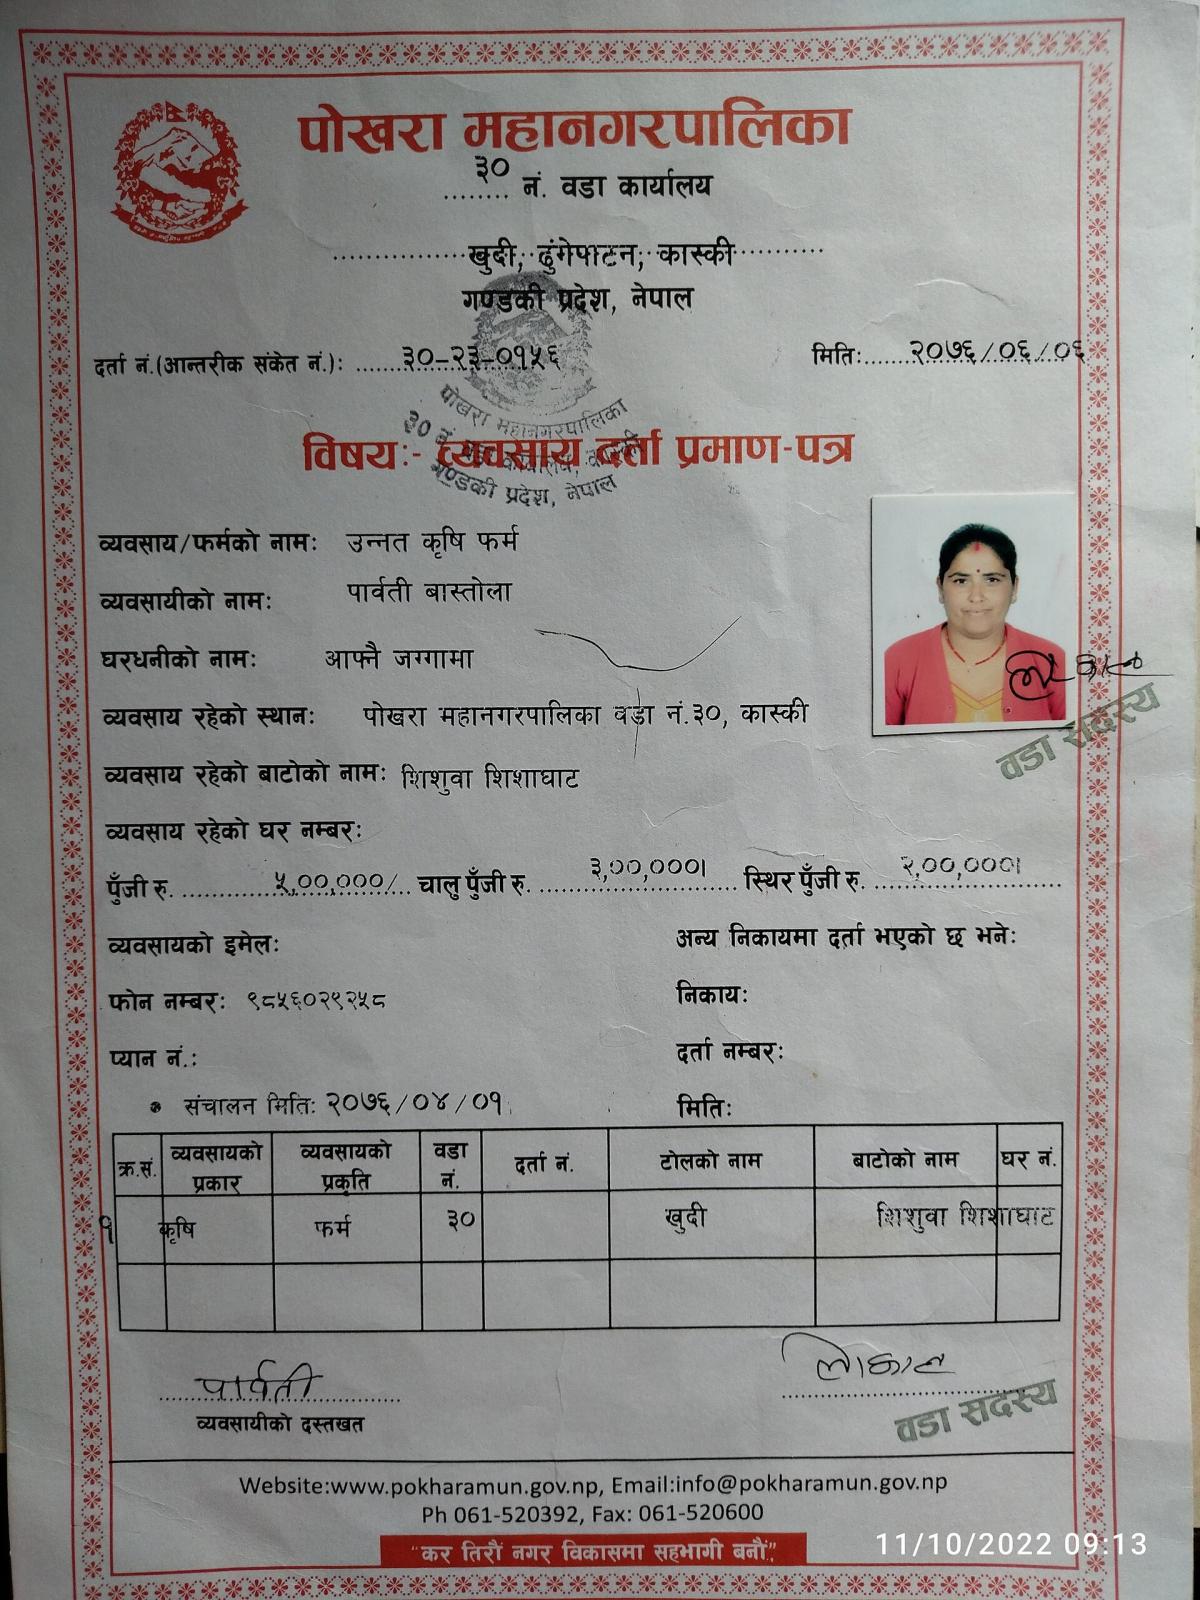 पोखरा महानगरपालिका
३० नं. वडा कार्यालय
खुदी, ढुंगेपाटन, कास्की
गण्डकी प्रदेश, नेपाल
दर्ता नं.(आन्तरीक संकेत नं.): ३०-२३-०१५६ मिति: २०७६/०६/०६
पोखरा महानगरपालिका
३० नं. वडा कार्यालय, कास्की
गण्डकी प्रदेश, नेपाल
विषय:- व्यवसाय दर्ता प्रमाण-पत्र
व्यवसाय/फर्मको नाम: उन्नत कृषि फर्म
व्यवसायीको नाम: पार्वती बास्तोला
घरधनीको नाम: आफ्नै जग्गामा
व्यवसाय रहेको स्थान: पोखरा महानगरपालिका वडा नं.३०, कास्की
वडा सदस्य
व्यवसाय रहेको बाटोको नाम: शिशुवा शिशाघाट
व्यवसाय रहेको घर नम्बर:
पुँजी रु. ५,००,०००/ चालु पुँजी रु. ३,००,०००। स्थिर पुँजी रु. २,००,०००।
व्यवसायको इमेल: अन्य निकायमा दर्ता भएको छ भने:
फोन नम्बर: ९८५६०२९२५८ निकाय:
प्यान नं.: दर्ता नम्बर:
संचालन मिति: २०७६/०४/०१ मिति:
क्र.सं. व्यवसायको प्रकार व्यवसायको प्रकृति वडा नं. दर्ता नं. टोलको नाम बाटोको नाम घर नं.
१ कृषि फर्म ३० खुदी शिशुवा शिशाघाट
पार्वती
व्यवसायीको दस्तखत
वडा सदस्य
Website:www.pokharamun.gov.np, Email:info@pokharamun.gov.np
Ph 061-520392, Fax: 061-520600
"कर तिरौं नगर विकासमा सहभागी बनौं"
11/10/2022 09:13